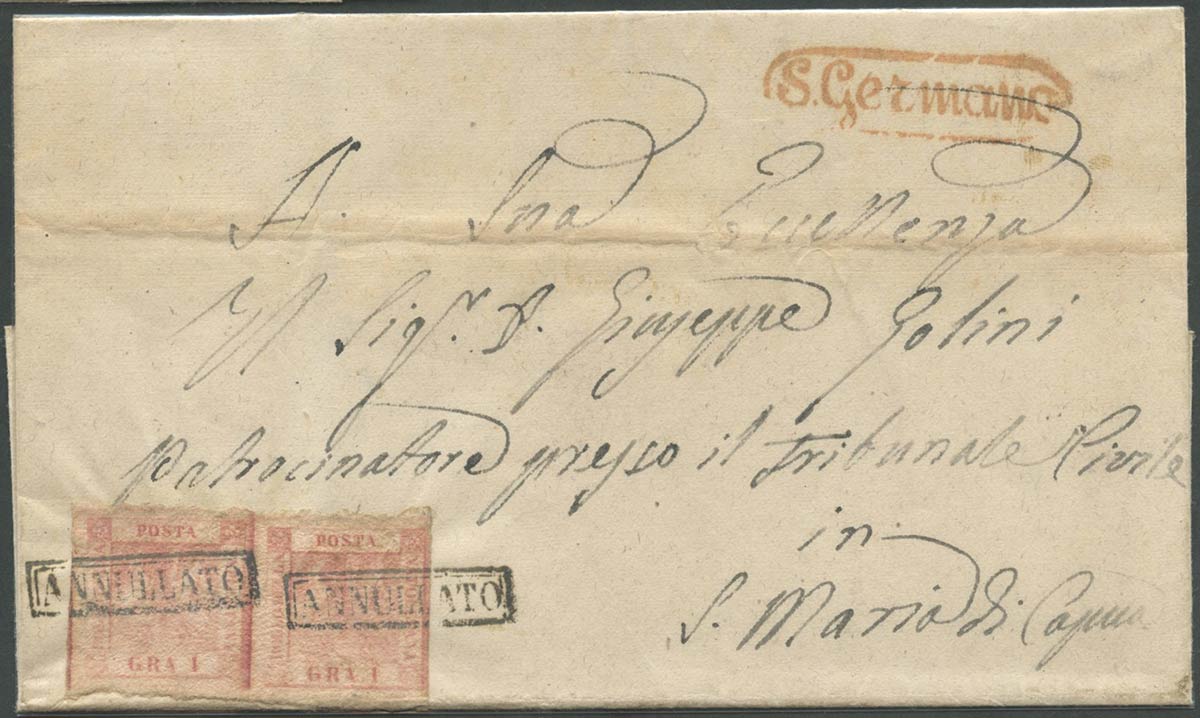 S. Germano
A. Sua Eccellenza
Il Sig.r D. Giuseppe Golini
Patrocinatore presso il Tribunale Civile
in
S. Maria di Capua
POSTA POSTA
ANNULLATO ANNULLATO
GRA 1 GRA 1